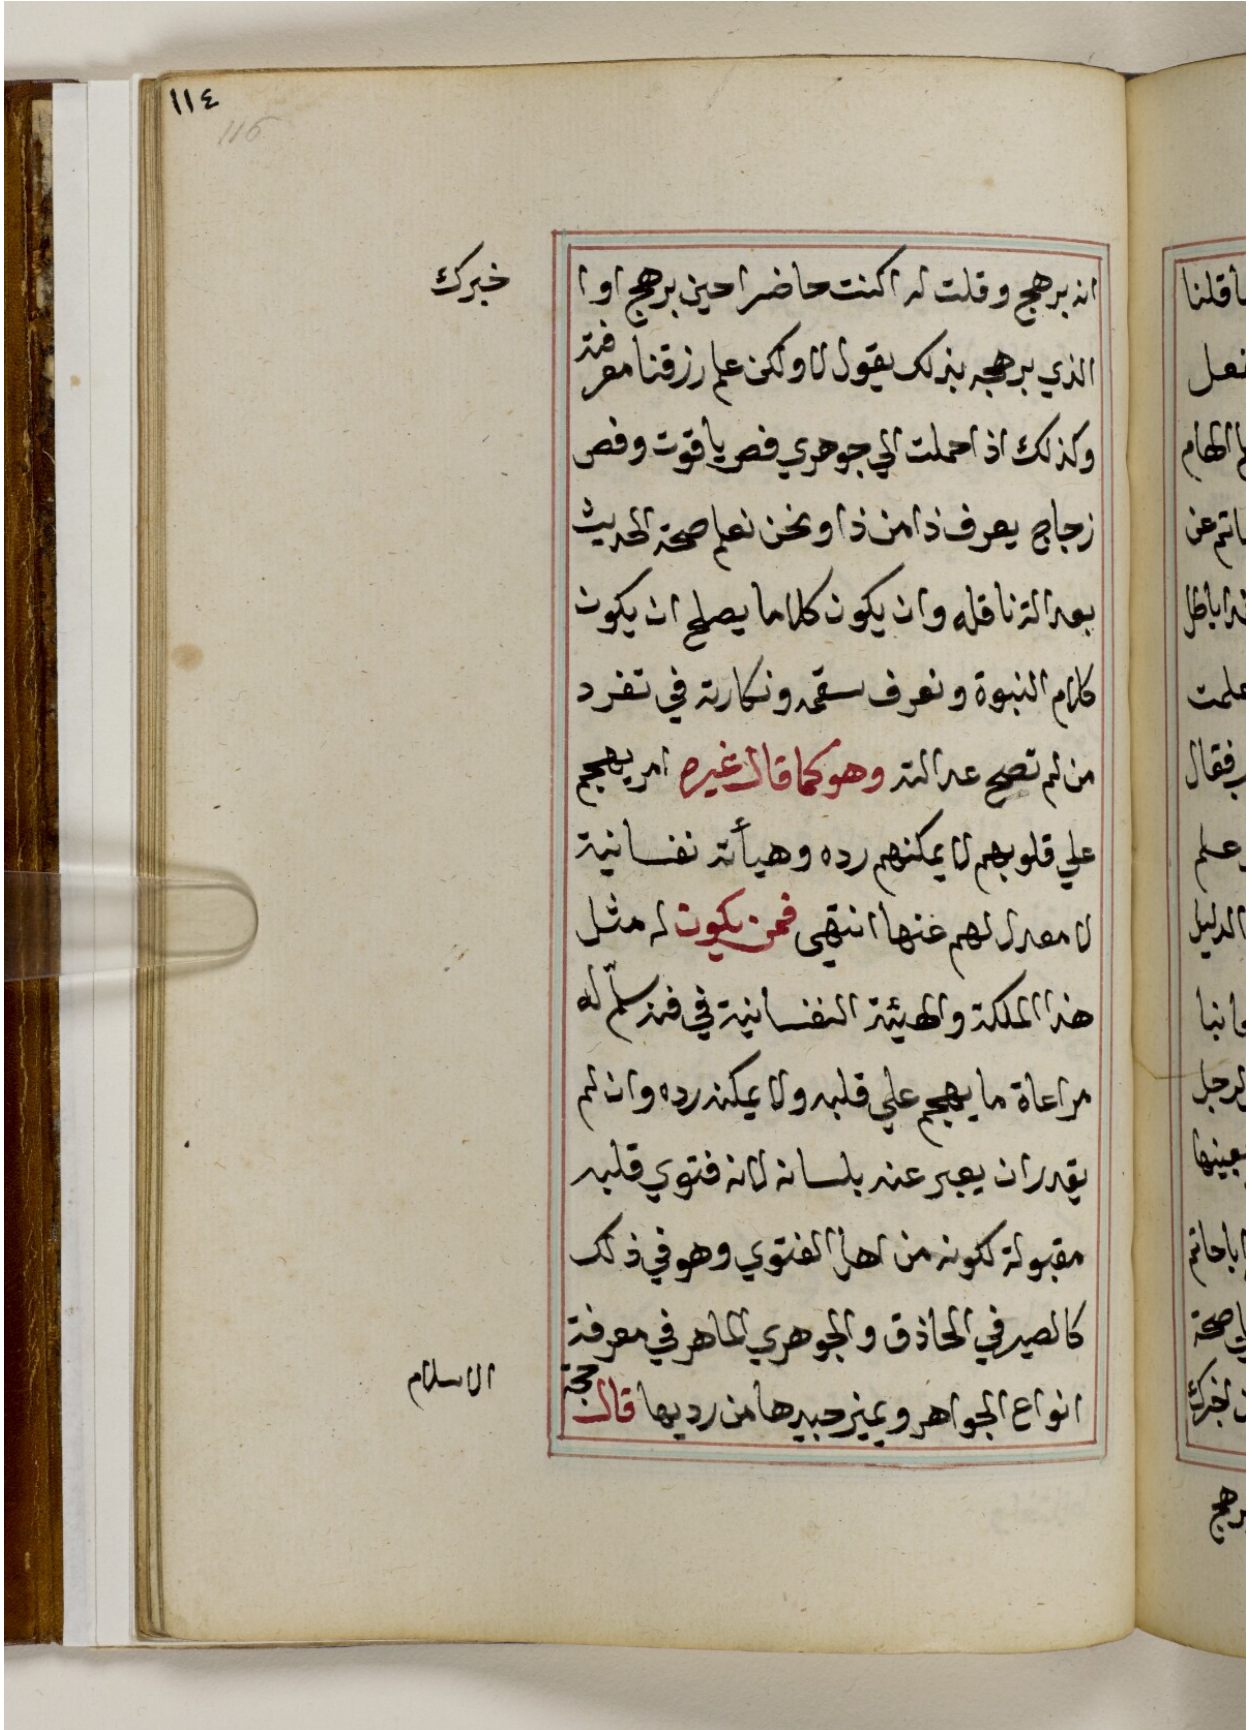 ١١٤
115
انه برهج وقلت له اكنت حاضرا حين برهج او ا
خبرك
الذي برهجه بذلك يقول لا ولكن علم رزقنا معرفته
وكذلك اذا حملت الي جوهري فص ياقوت وفص
زجاج يعرف ذا من ذا ونحن نعلم صحة الحديث
بعدالة ناقله وان يكون كلاما يصلح ان يكون
كلام النبوة ونعرف سقمه ونكارته في تفرد
من لم تصح عدالته وهو كما قال غيره امر يهجم
علي قلوبهم لا يمكنهم رده وهيأته نفسانية
لا معدل لهم عنها انتهى فمن يكون له مثل
هذا الملكة والهيئة النفسانية في فنه سلّم له
مراعاة ما يهجم علي قلبه ولا يمكنه رده وان لم
يقدر ان يعبر عنه بلسانه لانه فتوي قلبه
مقبولة لكونه من اهل الفتوي وهو في ذلك
كالصيرفي الحاذق والجوهري الماهر في معرفة
انواع الجواهر ويميز جيدها من رديها قال حجة
الاسلام
اقلنا
نعل
الهام
اتم عن
باطل
علمت
فقال
علم
الدليل
انبا
لرجل
بعينها
اباحاتم
صحة
اخبرك
برهج